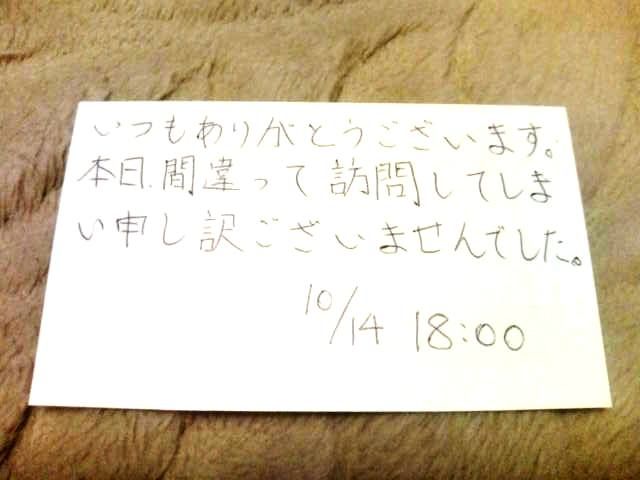 いつもありがとうございます。
本日、間違って訪問してしま
い申し訳ございませんでした。
10/14 18:00